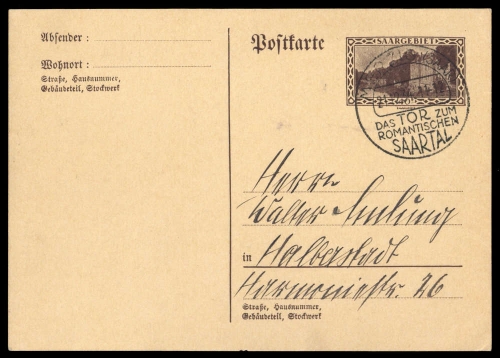 Absender :
Wohnort :
Straße, Hausnummer,
Gebäudeteil, Stockwerk
Postkarte
SAARGEBIET
DAS TOR ZUM
ROMANTISCHEN
SAARTAL
Herrn
Walter
in Halberstadt
Harmoniestr. 26
Straße, Hausnummer,
Gebäudeteil, Stockwerk